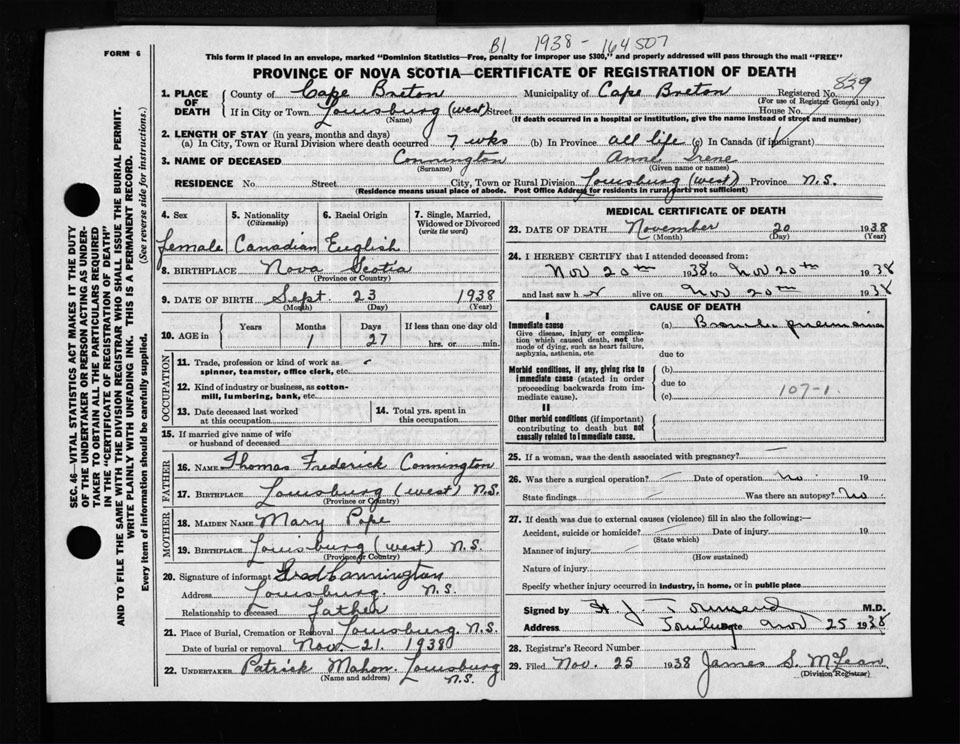 B1 1938 - 164507
FORM 6
This form if placed in an envelope, marked "Dominion Statistics—Free, penalty for improper use $300," and properly addressed will pass through the mail "FREE"
PROVINCE OF NOVA SCOTIA—CERTIFICATE OF REGISTRATION OF DEATH
829
1. PLACE OF DEATH County of Cape Breton Municipality of Cape Breton Registered No.
(For use of Registrar General only)
If in City or Town Louisburg (west) Street House No.
(Name) (If death occurred in a hospital or institution, give the name instead of street and number)
2. LENGTH OF STAY (in years, months and days)
(a) In City, Town or Rural Division where death occurred 7 wks (b) In Province all life (c) In Canada (if immigrant)
3. NAME OF DECEASED Connington Anne Irene
(Surname) (Given name or names)
RESIDENCE No. Street City, Town or Rural Division Louisburg (west) Province N.S.
(Residence means usual place of abode. Post Office Address for residents in rural parts not sufficient)
4. Sex 5. Nationality (Citizenship) 6. Racial Origin 7. Single, Married, Widowed or Divorced (write the word)
female Canadian English
8. BIRTHPLACE Nova Scotia
(Province or Country)
9. DATE OF BIRTH Sept 23 1938
(Month) (Day) (Year)
10. AGE in Years Months Days If less than one day old
1 27 hrs. or min.
OCCUPATION
11. Trade, profession or kind of work as spinner, teamster, office clerk, etc.
12. Kind of industry or business, as cotton-mill, lumbering, bank, etc.
13. Date deceased last worked at this occupation
14. Total yrs. spent in this occupation
15. If married give name of wife or husband of deceased
FATHER
16. NAME Thomas Frederick Connington
17. BIRTHPLACE Louisburg (west) N.S.
(Province or Country)
MOTHER
18. MAIDEN NAME Mary Pope
19. BIRTHPLACE Louisburg (west) N.S.
(Province or Country)
20. Signature of informant Fred Connington
Address Louisburg. N.S.
Relationship to deceased father
21. Place of Burial, Cremation or Removal Louisburg. N.S.
Date of burial or removal Nov. 21. 1938
22. UNDERTAKER Patrick Mahon. Louisburg
(Name and address) N.S.
MEDICAL CERTIFICATE OF DEATH
23. DATE OF DEATH November 20 1938
(Month) (Day) (Year)
24. I HEREBY CERTIFY that I attended deceased from:
Nov 20th 1938 to Nov 20th 1938
and last saw her alive on Nov 20th 1938
CAUSE OF DEATH
I
Immediate cause (a) Broncho pneumonia
Give disease, injury or complication which caused death, not the mode of dying, such as heart failure, asphyxia, asthenia, etc
due to
Morbid conditions, if any, giving rise to immediate cause (stated in order proceeding backwards from immediate cause).
(b)
due to
(c) 107-1.
II
Other morbid conditions (if important) contributing to death but not causally related to immediate cause.
25. If a woman, was the death associated with pregnancy?
26. Was there a surgical operation? Date of operation No 19
State findings Was there an autopsy? No
27. If death was due to external causes (violence) fill in also the following:—
Accident, suicide or homicide? Date of injury 19
(State which)
Manner of injury
(How sustained)
Nature of injury
Specify whether injury occurred in industry, in home, or in public place
Signed by H. J. Townsend M.D.
Address Nov 25 1938
28. Registrar's Record Number
29. Filed Nov. 25 1938 James S. McLean
(Division Registrar)
SEC. 46—VITAL STATISTICS ACT MAKES IT THE DUTY
OF THE UNDERTAKER OR PERSON ACTING AS UNDER-
TAKER TO OBTAIN ALL THE PARTICULARS REQUIRED
IN THE "CERTIFICATE OF REGISTRATION OF DEATH"
AND TO FILE THE SAME WITH THE DIVISION REGISTRAR WHO SHALL ISSUE THE BURIAL PERMIT.
WRITE PLAINLY WITH UNFADING INK. THIS IS A PERMANENT RECORD.
Every item of information should be carefully supplied. (See reverse side for instructions.)